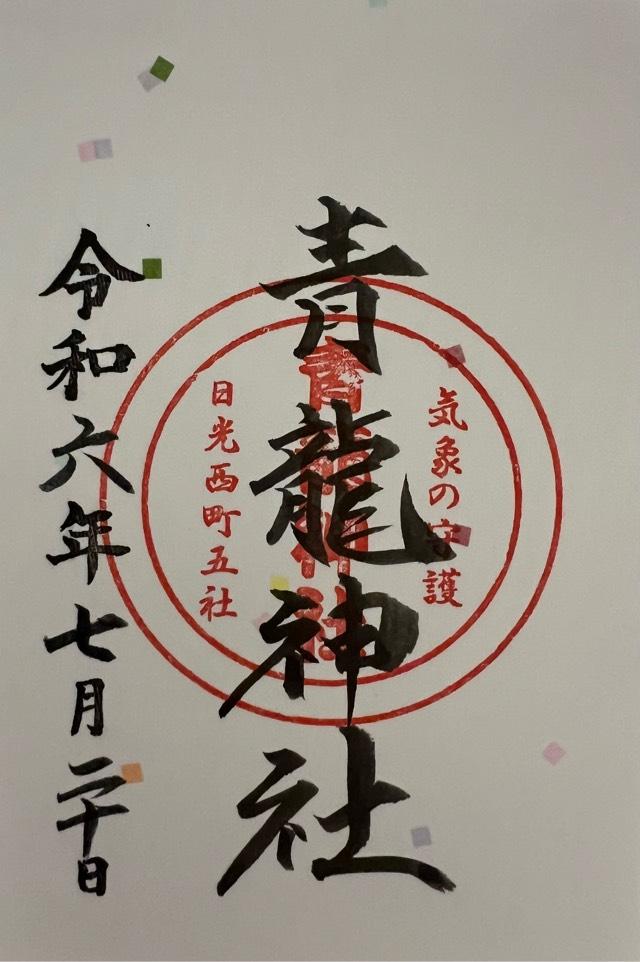 気象の守護
青龍神社
青龍神社
日光西町五社
令和六年七月二十日